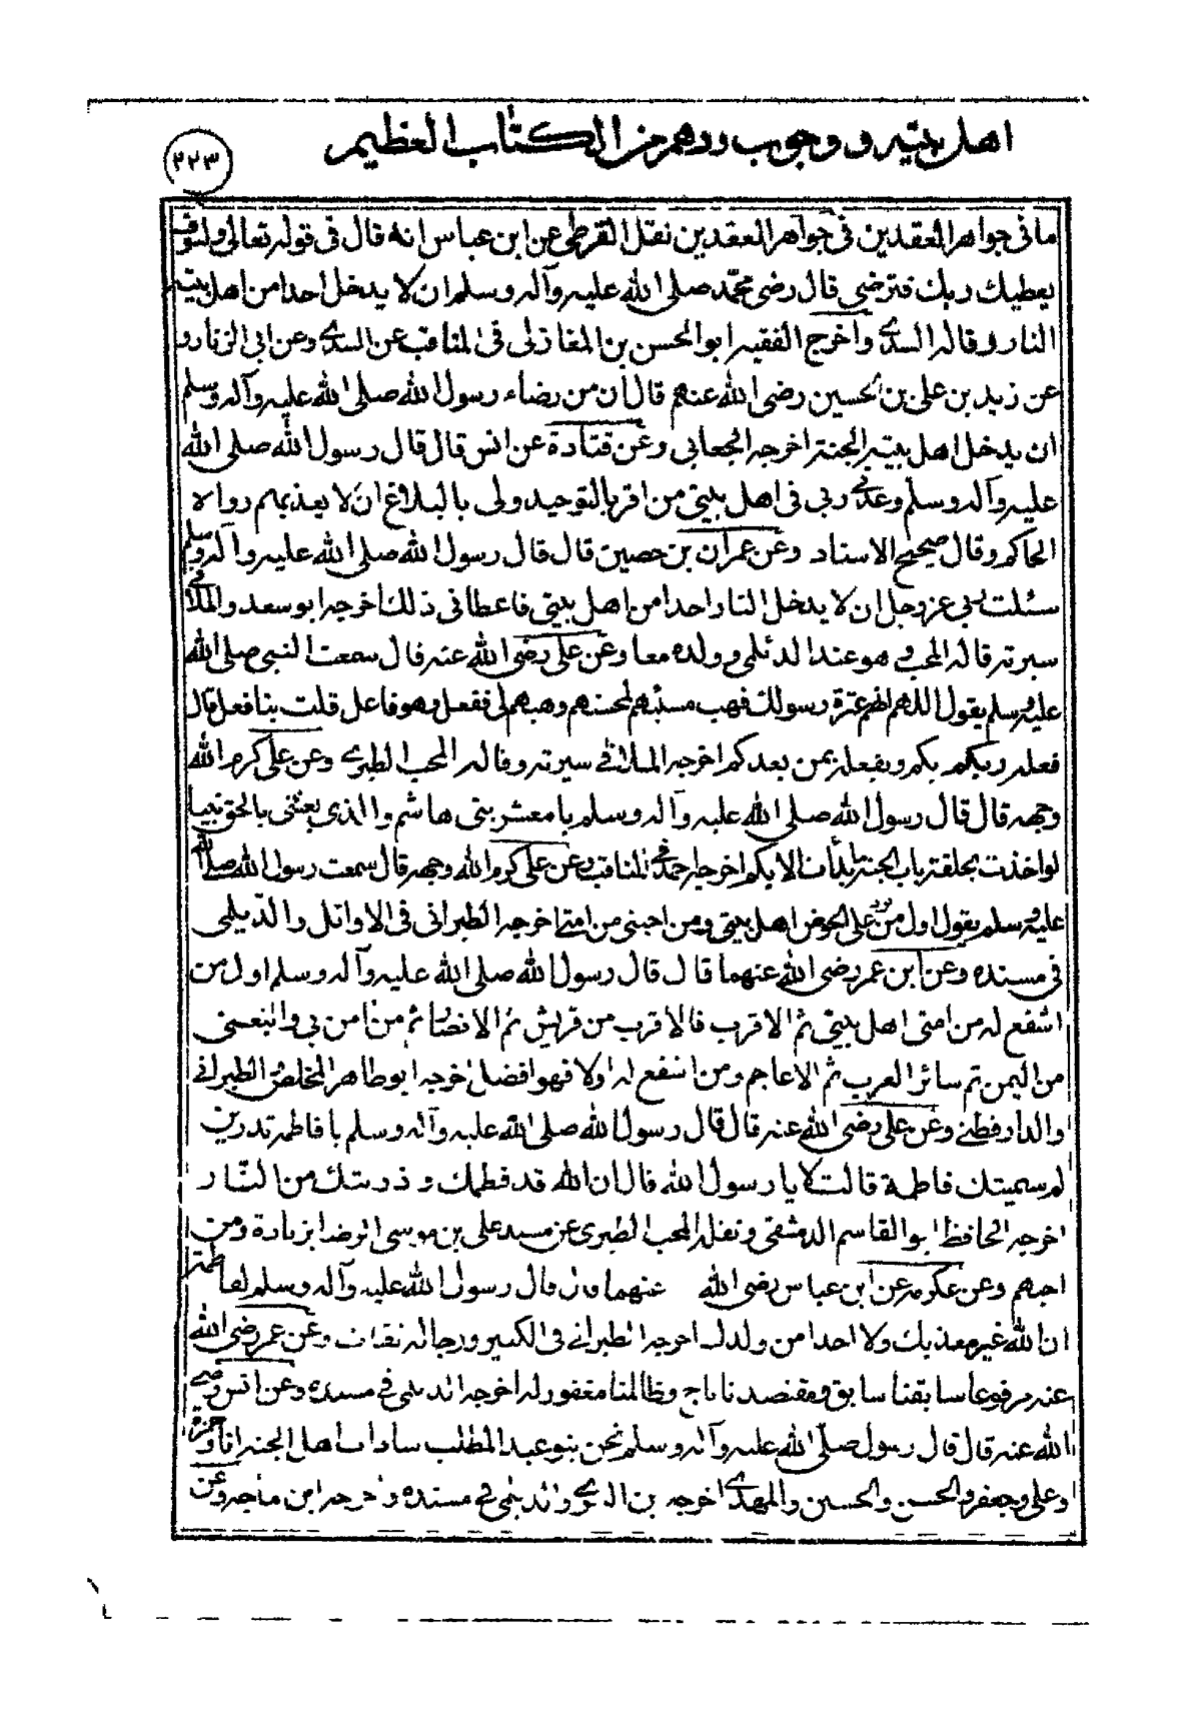 اهل بيته و وجوب ودهم من الكتاب العظيم
٢٢٣
ما فى جواهر العقدين فى جواهر العقدين نقل القرطبى عن ابن عباس انه قال فى قوله تعالى ولسوف
يعطيك ربك فترضى قال رضى محمّد صلى الله عليه وآله وسلم ان لا يدخل احدا من اهل بيته
النار وقاله السدى واخرج الفقيه ابو الحسن بن المغازلى فى المناقب عن السدى وعن ابى الزناد و
عن زيد بن على بن الحسين رضى الله عنهم قال ان من رضاء رسول الله صلى الله عليه وآله وسلم
ان يدخل اهل بيته الجنة اخرجه الجعابى وعن قتادة عن انس قال قال رسول الله صلى الله
عليه وآله وسلم وعدنى ربى فى اهل بيتى من اقر بالتوحيد ولى بالبلاغ ان لا يعذبهم رواه
الحاكم وقال صحيح الاسناد وعن عمران بن حصين قال قال رسول الله صلى الله عليه وآله وسلم
سئلت ربى عز وجل ان لا يدخل النار احدا من اهل بيتى فاعطانى ذلك اخرجه ابو سعد والملا فى
سيرته قاله المحب وهو عند الديلمى وولده معا وعن على رضى الله عنه قال سمعت النبى صلى الله
عليه وسلم يقول اللهم انهم عترة رسولك فهب مسيئهم لمحسنهم وهبهم لى ففعل وهو فاعل قلت بنا فعل قال
فعله ربكم بكم ويفعله بمن بعدكم اخرجه الملا فى سيرته وقاله المحب الطبرى وعن على كرم الله
وجهه قال قال رسول الله صلى الله عليه وآله وسلم يا معشر بنى هاشم والذى بعثنى بالحق نبيا
لو اخذت بحلقة باب الجنة ما بدأت الا بكم اخرجه احمد فى المناقب وعن على كرم الله وجهه قال سمعت رسول الله صلى الله
عليه وسلم يقول اول من يرد على الحوض اهل بيتى ومن احبنى من امتى اخرجه الطبرانى فى الاوائل والدّيلمى
فى مسنده وعن ابن عمر رضى الله عنهما قال قال رسول الله صلى الله عليه وآله وسلم اول من
اشفع له من امتى اهل بيتى ثم الاقرب فالاقرب من قريش ثم الانصار ثم من آمن بى واتبعنى
من اليمن ثم سائر العرب ثم الاعاجم ومن اشفع له اولا فهو افضل اخرجه ابو طاهر المخلص والطبرانى
والدارقطنى وعن على رضى الله عنه قال قال رسول الله صلى الله عليه وآله وسلم يا فاطمة تدرين
لم سميتك فاطمة قالت لا يا رسول الله قال ان الله قد فطمك و ذريتك من النّار
اخرجه الحافظ ابو القاسم الدمشقى ونقله المحب الطبرى عن مسند على بن موسى الرضا بزيادة ومن
احبهم وعن عكرمة عن ابن عباس رضى الله عنهما قال قال رسول الله عليه وآله وسلم لفاطمة
ان الله غير معذبك ولا احدا من ولدك اخرجه الطبرانى فى الكبير ورجاله ثقات وعن عمر رضى الله
عنه مرفوعا سابقنا سابق ومقتصدنا ناج وظالمنا مغفور له اخرجه الديلمى فى مسنده وعن انس رضى
الله عنه قال قال رسول صلى الله عليه وآله وسلم نحن بنو عبد المطلب سادات اهل الجنة انا وحمزة
وعلى وجعفر والحسن والحسين والمهدى اخرجه بن السرى والديلمى فى مسنده واخرجه ابن ماجه وعن